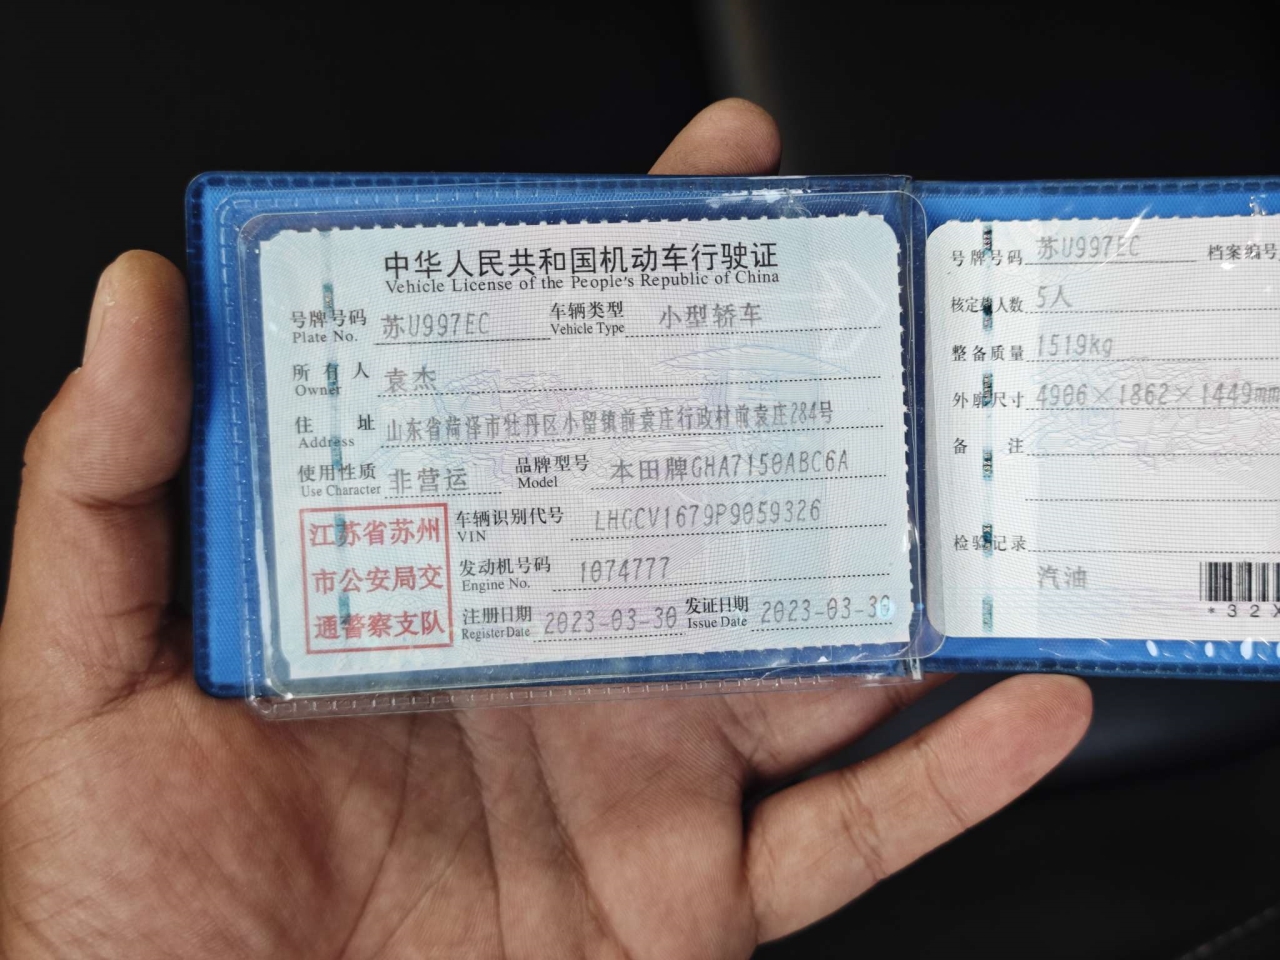 中华人民共和国机动车行驶证
Vehicle License of the People's Republic of China
号牌号码 苏U997EC 车辆类型 小型轿车
Plate No. Vehicle Type
所有人 袁杰
Owner
住址 山东省菏泽市牡丹区小留镇前袁庄行政村前袁庄284号
Address
使用性质 非营运 品牌型号 本田牌GHA7150ABC6A
Use Character Model
车辆识别代号 LHGCV1679P9059326
VIN
发动机号码 1074777
Engine No.
注册日期 2023-03-30 发证日期 2023-03-30
Register Date Issue Date
江苏省苏州
市公安局交
通警察支队
号牌号码 苏U997EC 档案编号
核定载人数 5人
整备质量 1519kg
外廓尺寸 4906×1862×1449mm
备注
检验记录
汽油
*32